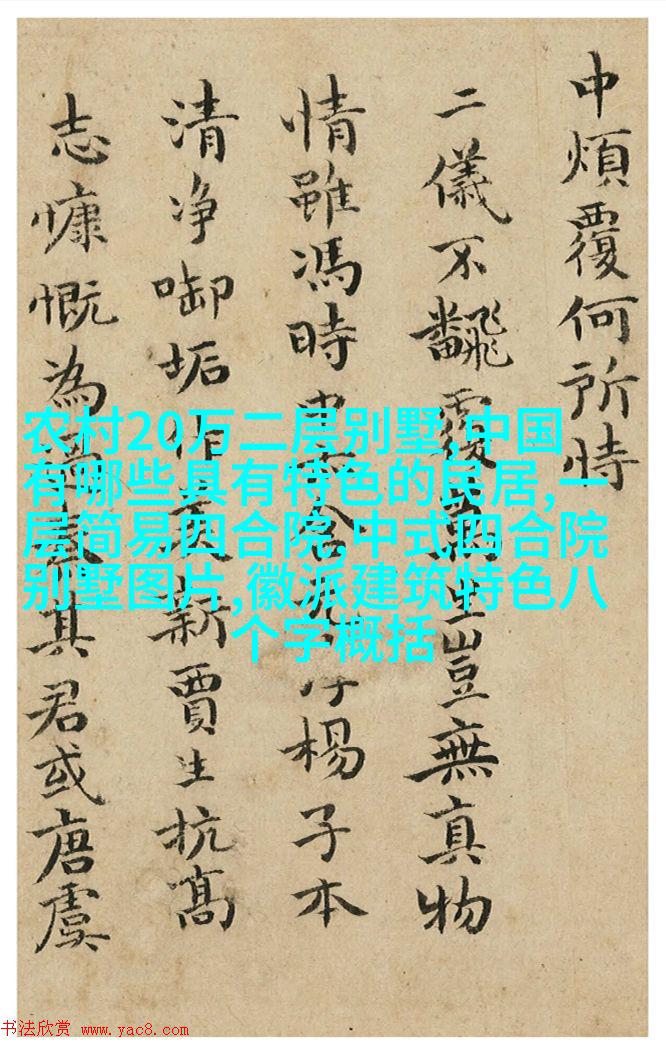 中煩覆何所恃
二儀不飜覆萬生豈無真物
情雖馮時
楊子本
清净啣垢作
新賈生抗髙
志慷慨為
其君或唐虞
农村20万二层别墅,中国
有哪些具有特色的民居,一
层简易四合院,中式四合院
别墅图片,徽派建筑特色八
个字概括
书法欣赏 www.yac8.com